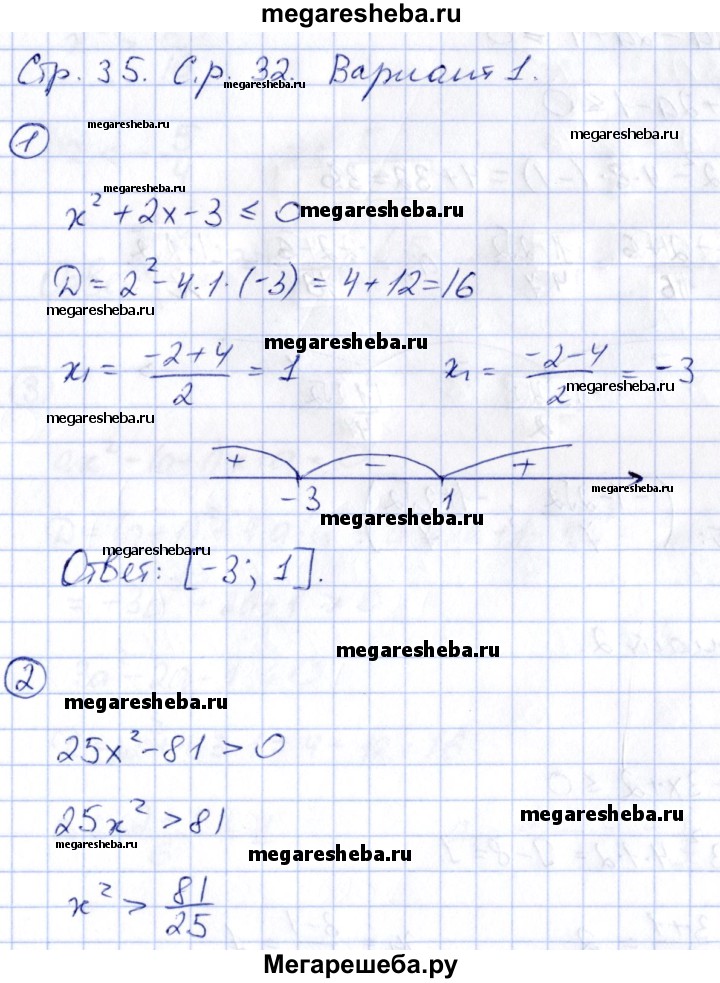 megaresheba.ru
Стр. 35. С.р. 32. Вариант 1.
megaresheba.ru
1
megaresheba.ru
megaresheba.ru
megaresheba.ru
x² + 2x - 3 ≤ 0 megaresheba.ru
D = 2² - 4 · 1 · (-3) = 4 + 12 = 16
megaresheba.ru
megaresheba.ru
x₁ = (-2+4)/2 = 1 x₂ = (-2-4)/2 = -3
megaresheba.ru
megaresheba.ru
+ - +
megaresheba.ru
-3 1
megaresheba.ru
megaresheba.ru
Ответ: [-3; 1].
megaresheba.ru
2
megaresheba.ru
25x² - 81 > 0
25x² > 81
megaresheba.ru
megaresheba.ru
megaresheba.ru
x² > 81/25
Мегарешеба.ру